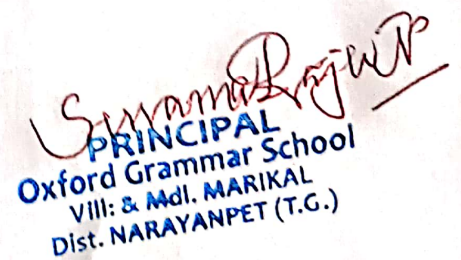 PRINCIPAL
Oxford Grammar School
Vill: & Mdl. MARIKAL
Dist. NARAYANPET (T.G.)